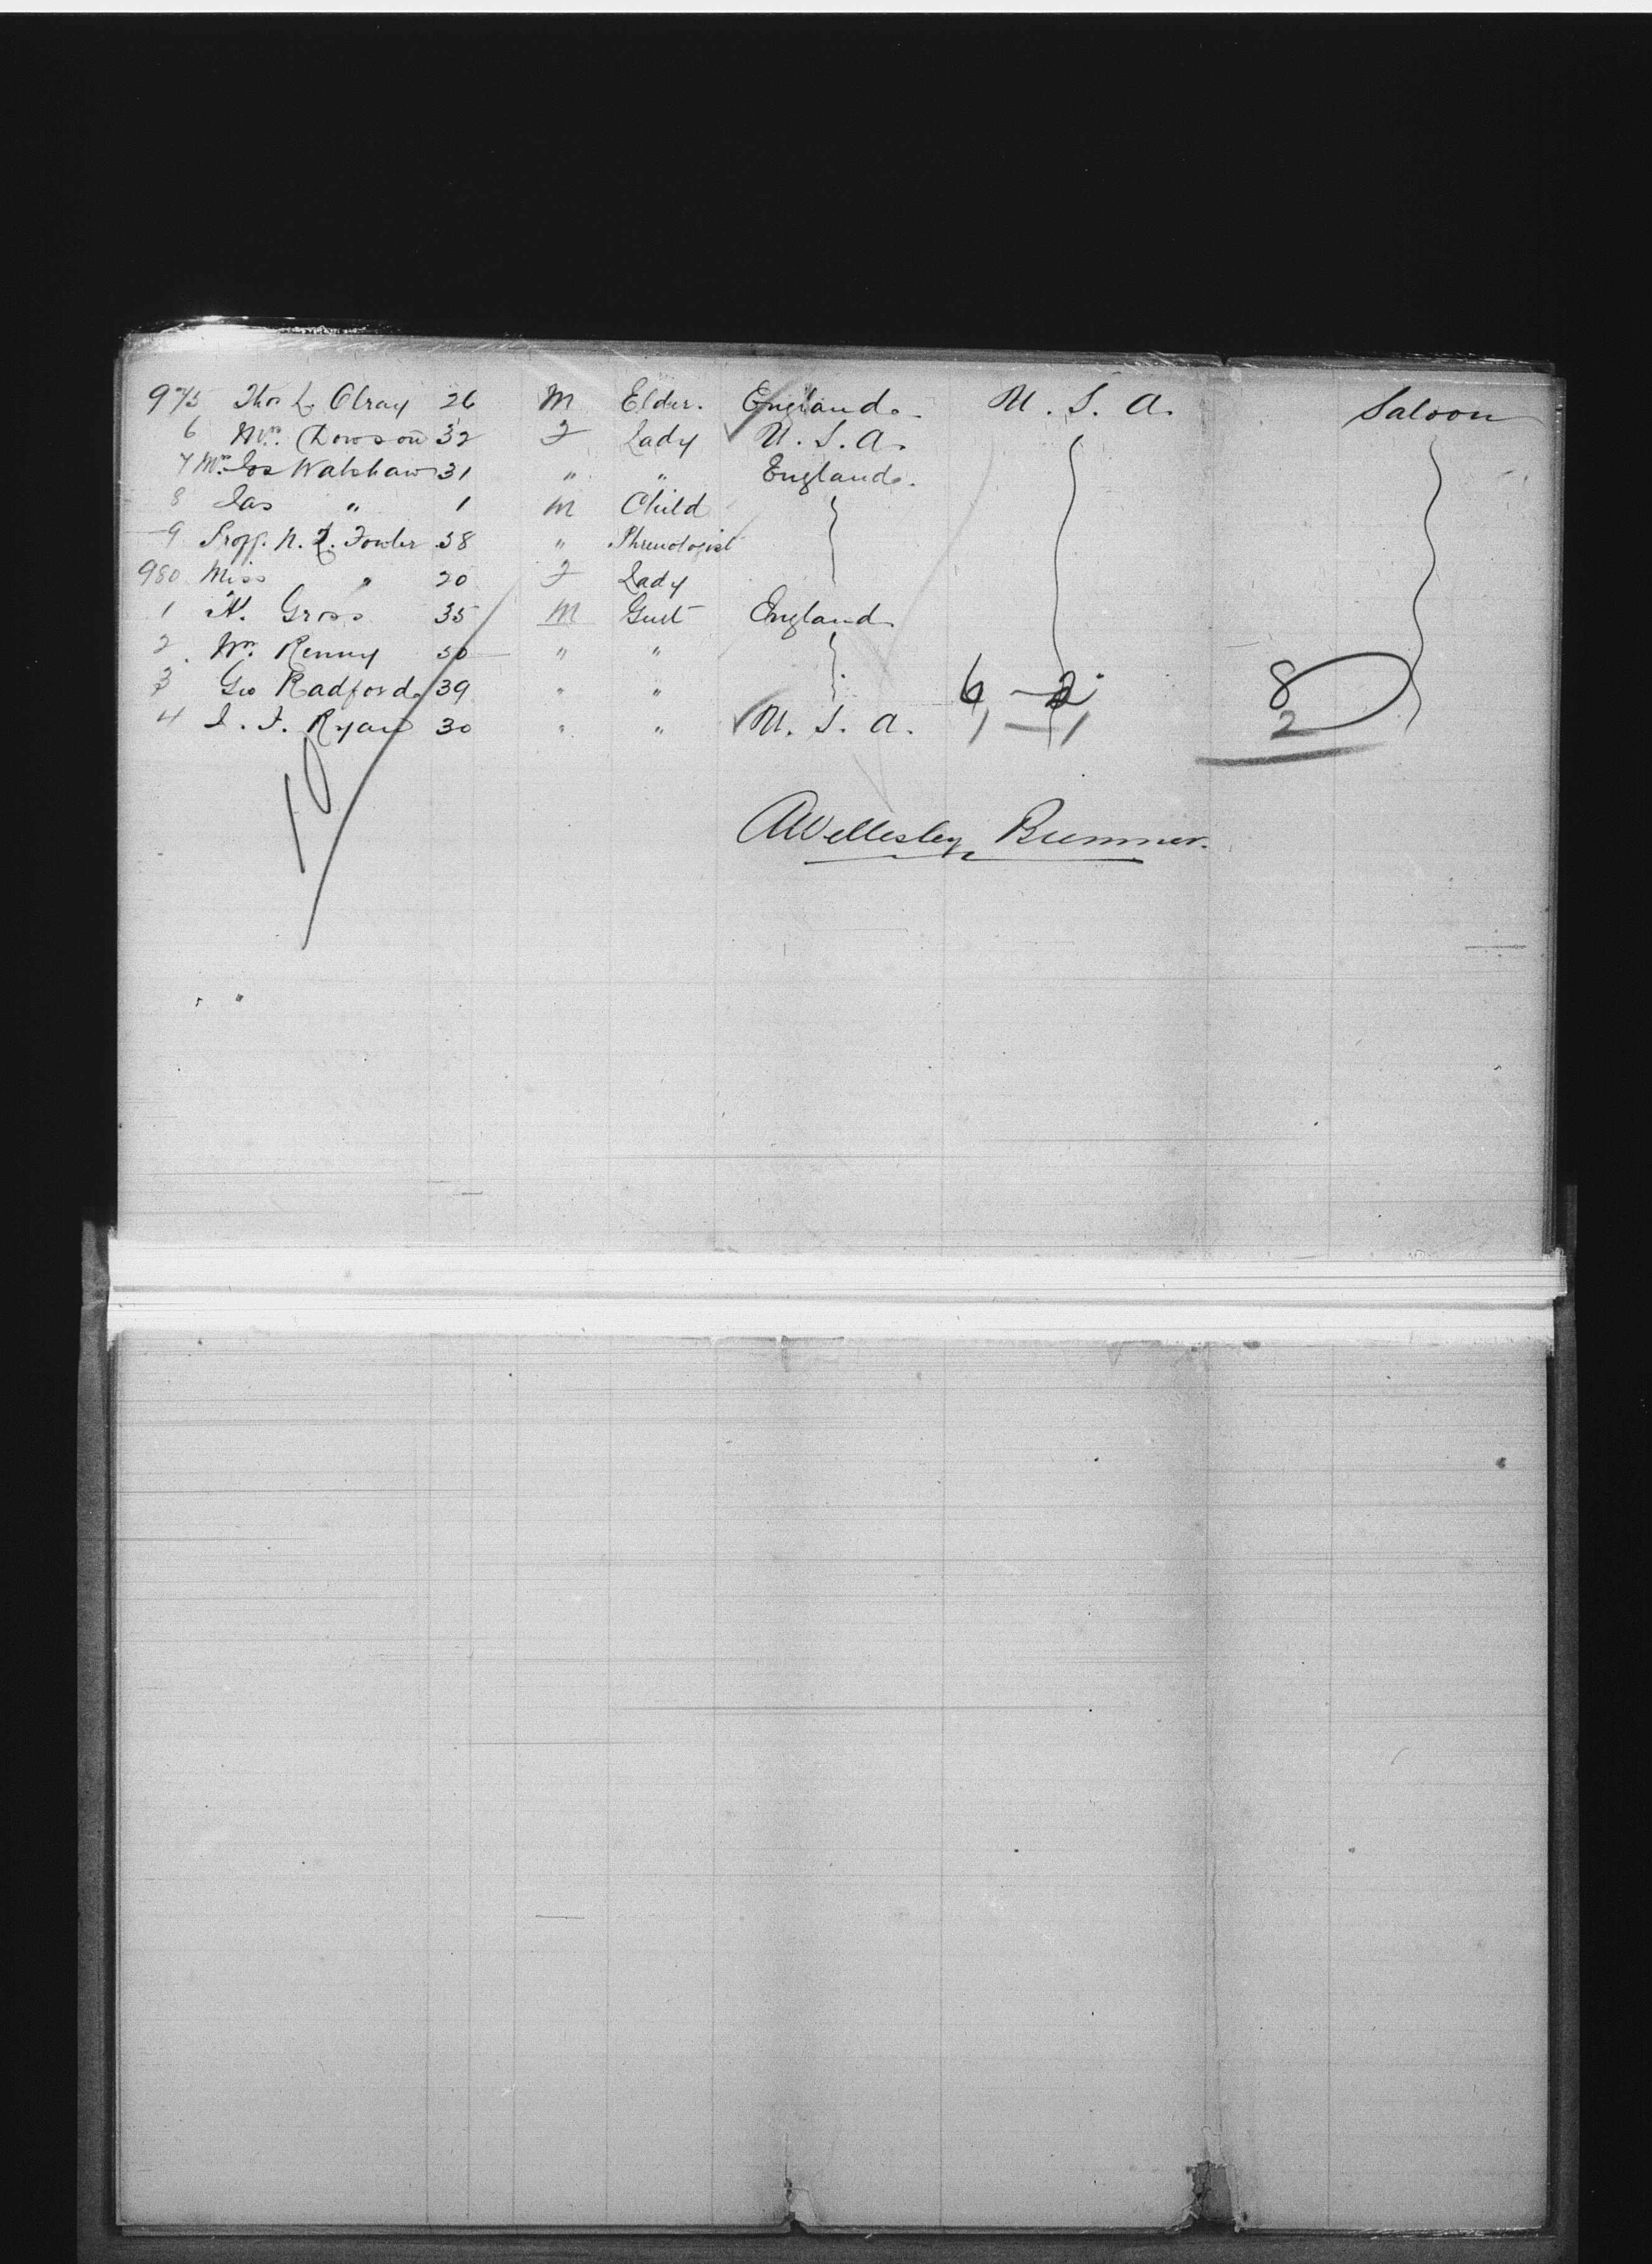 975 Thos L. Olray 26 M Elder. England. U. S. A. Saloon
6 Mrs. Dowson 32 F Lady U. S. A.
7 Mrs. Jos Walshaw 31 " " England.
8 Jas " 1 M Child
9 Proff. N. L. Fowler 38 " Phrenologist
980 Miss " 20 F Lady
1 N. Gross 35 M Gent England
2 Wm. Renny 50 " "
3 Geo Radford 39 " " 6 - 2 8
4 J. F. Ryan 30 " " U. S. A. 1 - 1 2
10
AWellesley Bummer.